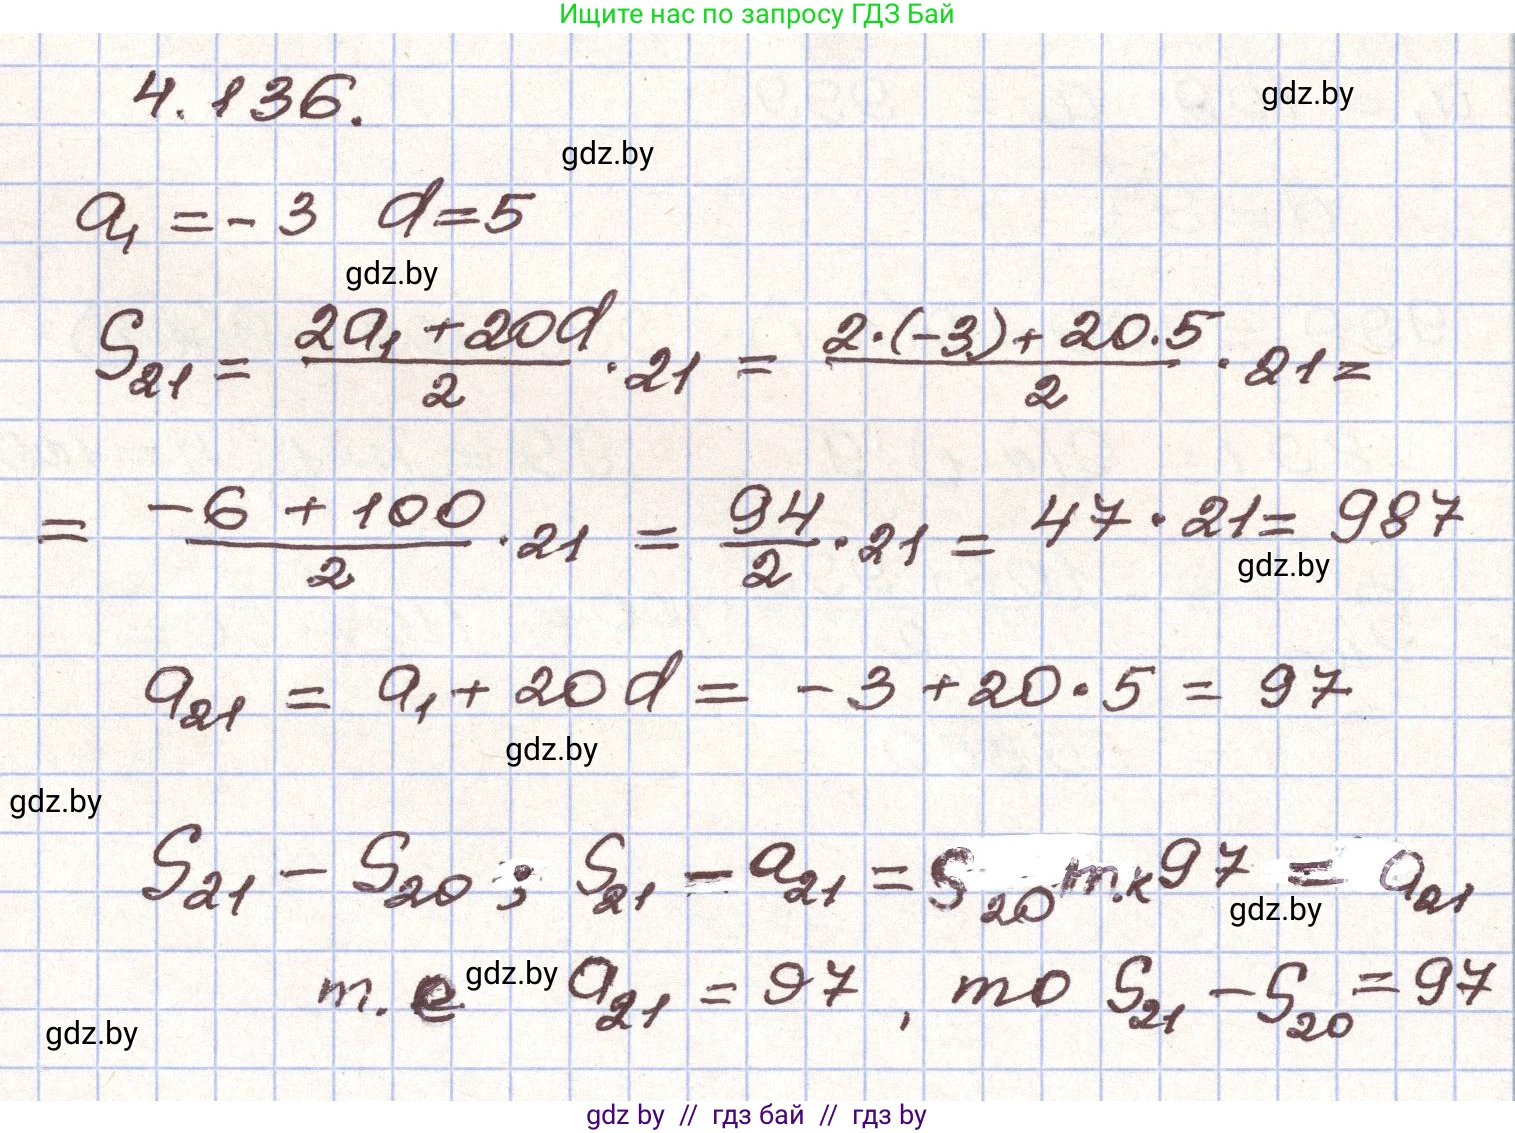 Ищите нас по запросу ГДЗ Бай
4.136.
gdz.by
gdz.by
a₁ = - 3 d = 5
gdz.by
S₂₁ = (2a₁ + 20d)/2 · 21 = (2·(-3) + 20·5)/2 · 21 =
= (-6 + 100)/2 · 21 = 94/2 · 21 = 47 · 21 = 987
gdz.by
a₂₁ = a₁ + 20d = - 3 + 20 · 5 = 97
gdz.by
gdz.by
S₂₁ - S₂₀ ; S₂₁ - a₂₁ = S₂₀ т.к 97 = a₂₁
gdz.by
т. е gdz.by a₂₁ = 97 , то S₂₁ - S₂₀ = 97
gdz.by
gdz by // гдз бай // гдз by